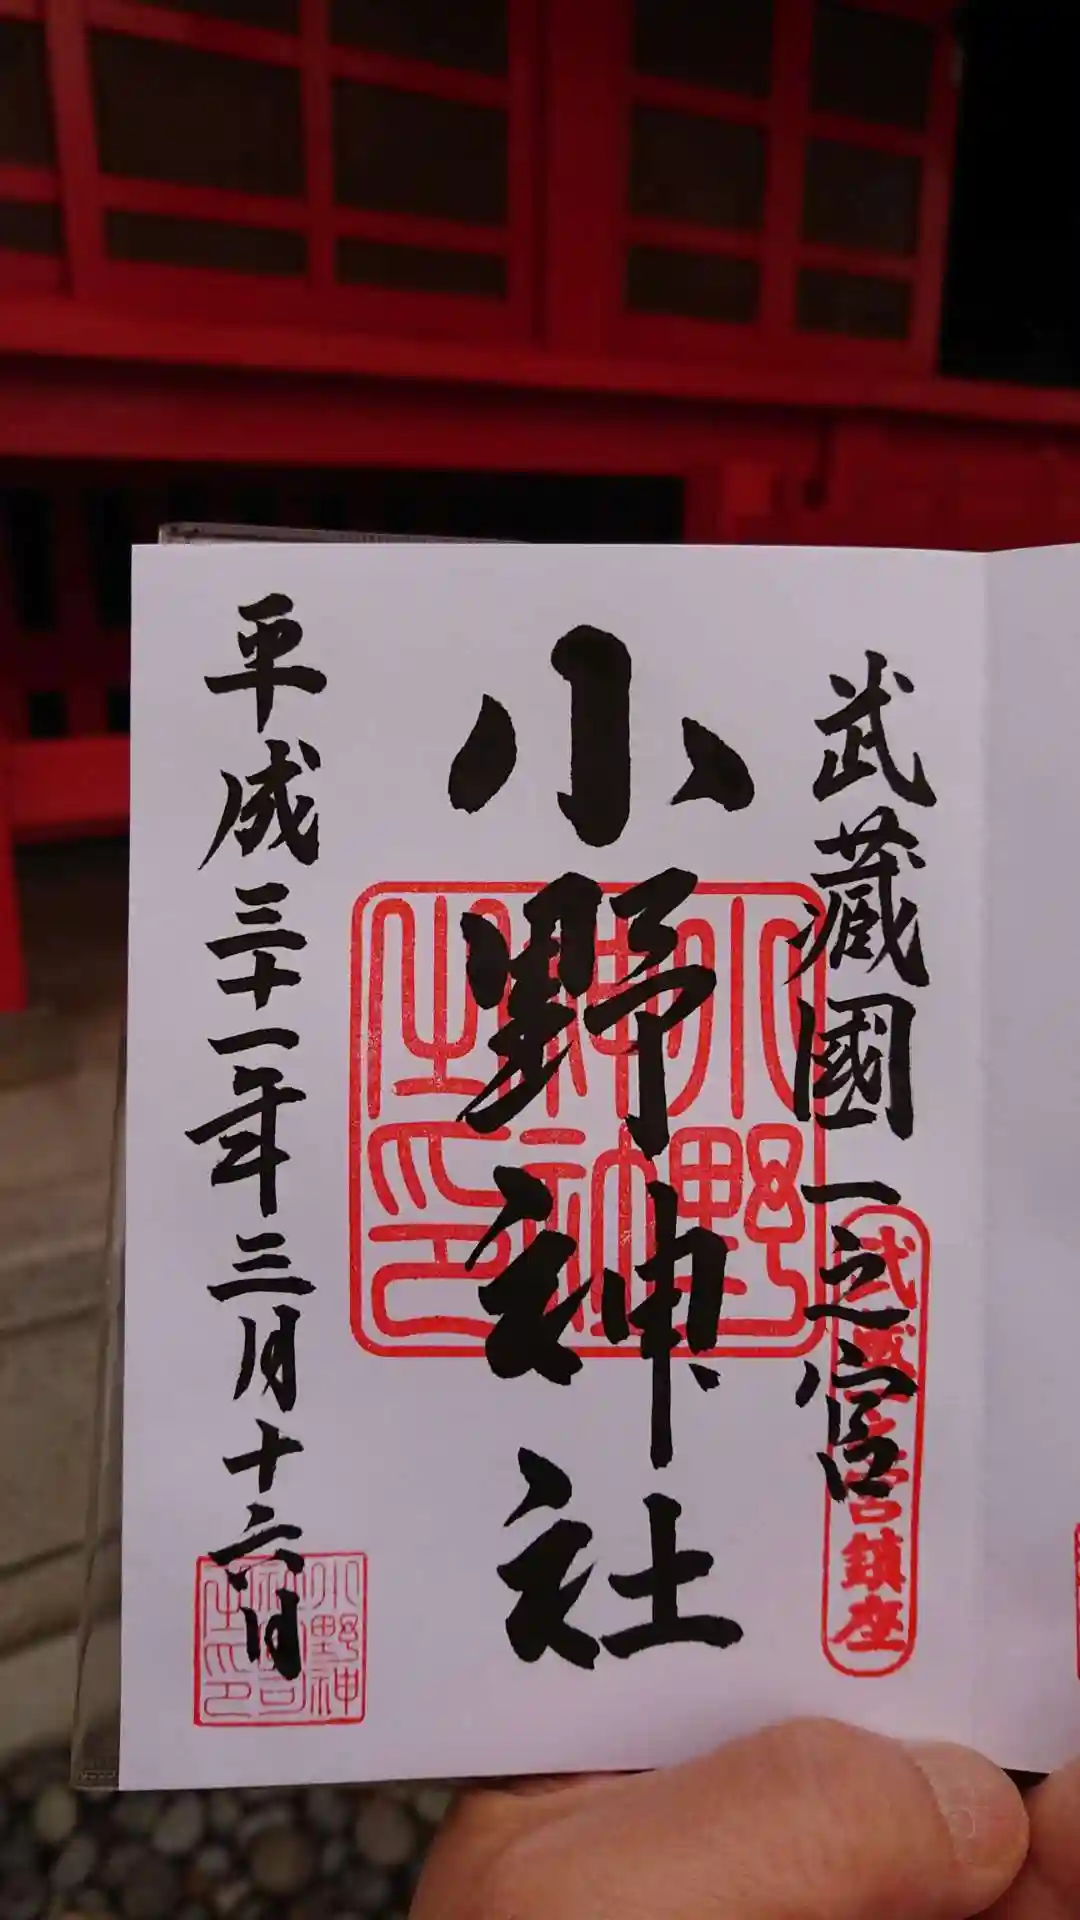 武蔵國一之宮
武蔵一之宮鎮座
小野神社
小野神社之印
平成三十一年三月十六日